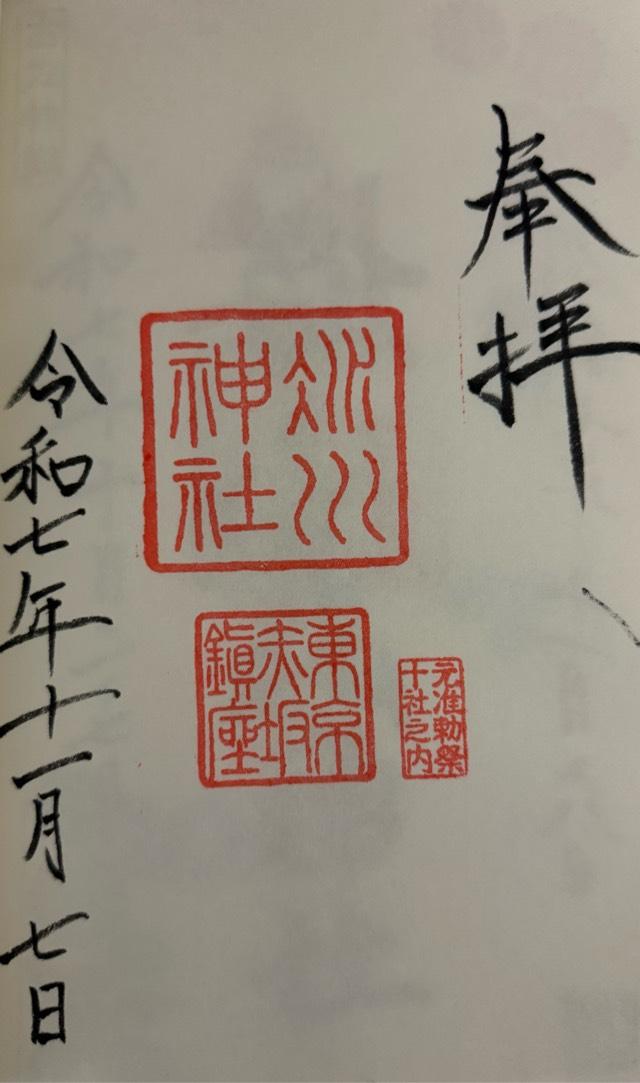 奉拝
氷川
神社
元准勅祭
十社之内
東京
赤坂
鎮座
令和七年十一月七日